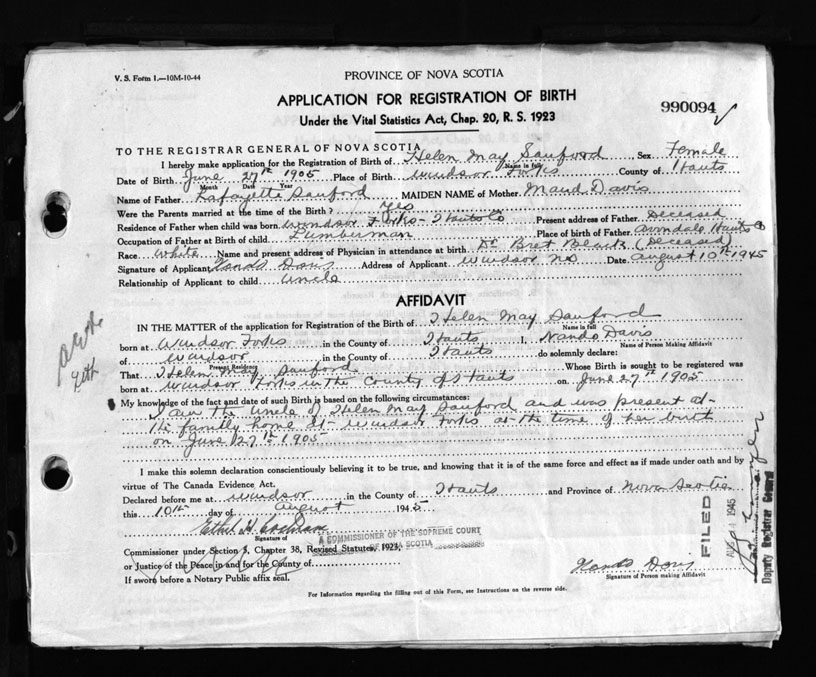 V. S. Form 1.—10M-10-44
PROVINCE OF NOVA SCOTIA
APPLICATION FOR REGISTRATION OF BIRTH
Under the Vital Statistics Act, Chap. 20, R. S. 1923
990094
TO THE REGISTRAR GENERAL OF NOVA SCOTIA
I hereby make application for the Registration of Birth of Helen May Sanford, Sex Female
Name in full
Date of Birth June 27th 1905 Place of Birth Windsor Forks County of Hants
Month Date Year
Name of Father Lafayette Sanford MAIDEN NAME of Mother Maud Davis
Were the Parents married at the time of the Birth? Yes
Residence of Father when child was born Windsor Forks - Hants Co Present address of Father Deceased
Occupation of Father at Birth of child Lumberman Place of birth of Father Avondale Hants Co
Race White Name and present address of Physician in attendance at birth Dr Bret Black (Deceased)
Signature of Applicant Nando Davis Address of Applicant Windsor NS Date August 10th 1945
Relationship of Applicant to child Uncle
AFFIDAVIT
IN THE MATTER of the application for Registration of the Birth of Helen May Sanford
Name in full
born at Windsor Forks in the County of Hants I, Nando Davis
Name of Person Making Affidavit
of Windsor in the County of Hants do solemnly declare:
Present Residence
That Helen May Sanford Whose Birth is sought to be registered was
born at Windsor Forks in the County of Hants on June 27th 1905
My knowledge of the fact and date of such Birth is based on the following circumstances:
I am the Uncle of Helen May Sanford and was present at
the family home at Windsor Forks at the time of her birth
on June 27th 1905
I make this solemn declaration conscientiously believing it to be true, and knowing that it is of the same force and effect as if made under oath and by
virtue of The Canada Evidence Act.
Declared before me at Windsor in the County of Hants and Province of Nova Scotia
this 10th day of August 1945
Ethel H Cochran
Signature of
A COMMISSIONER OF THE SUPREME COURT
Commissioner under Section 3, Chapter 38, Revised Statutes, 1923,
SCOTIA
or Justice of the Peace in and for the County of
If sworn before a Notary Public affix seal.
Nando Davis
Signature of Person making Affidavit
For Information regarding the filling out of this Form, see Instructions on the reverse side.
FILED
1945
Deputy Registrar General